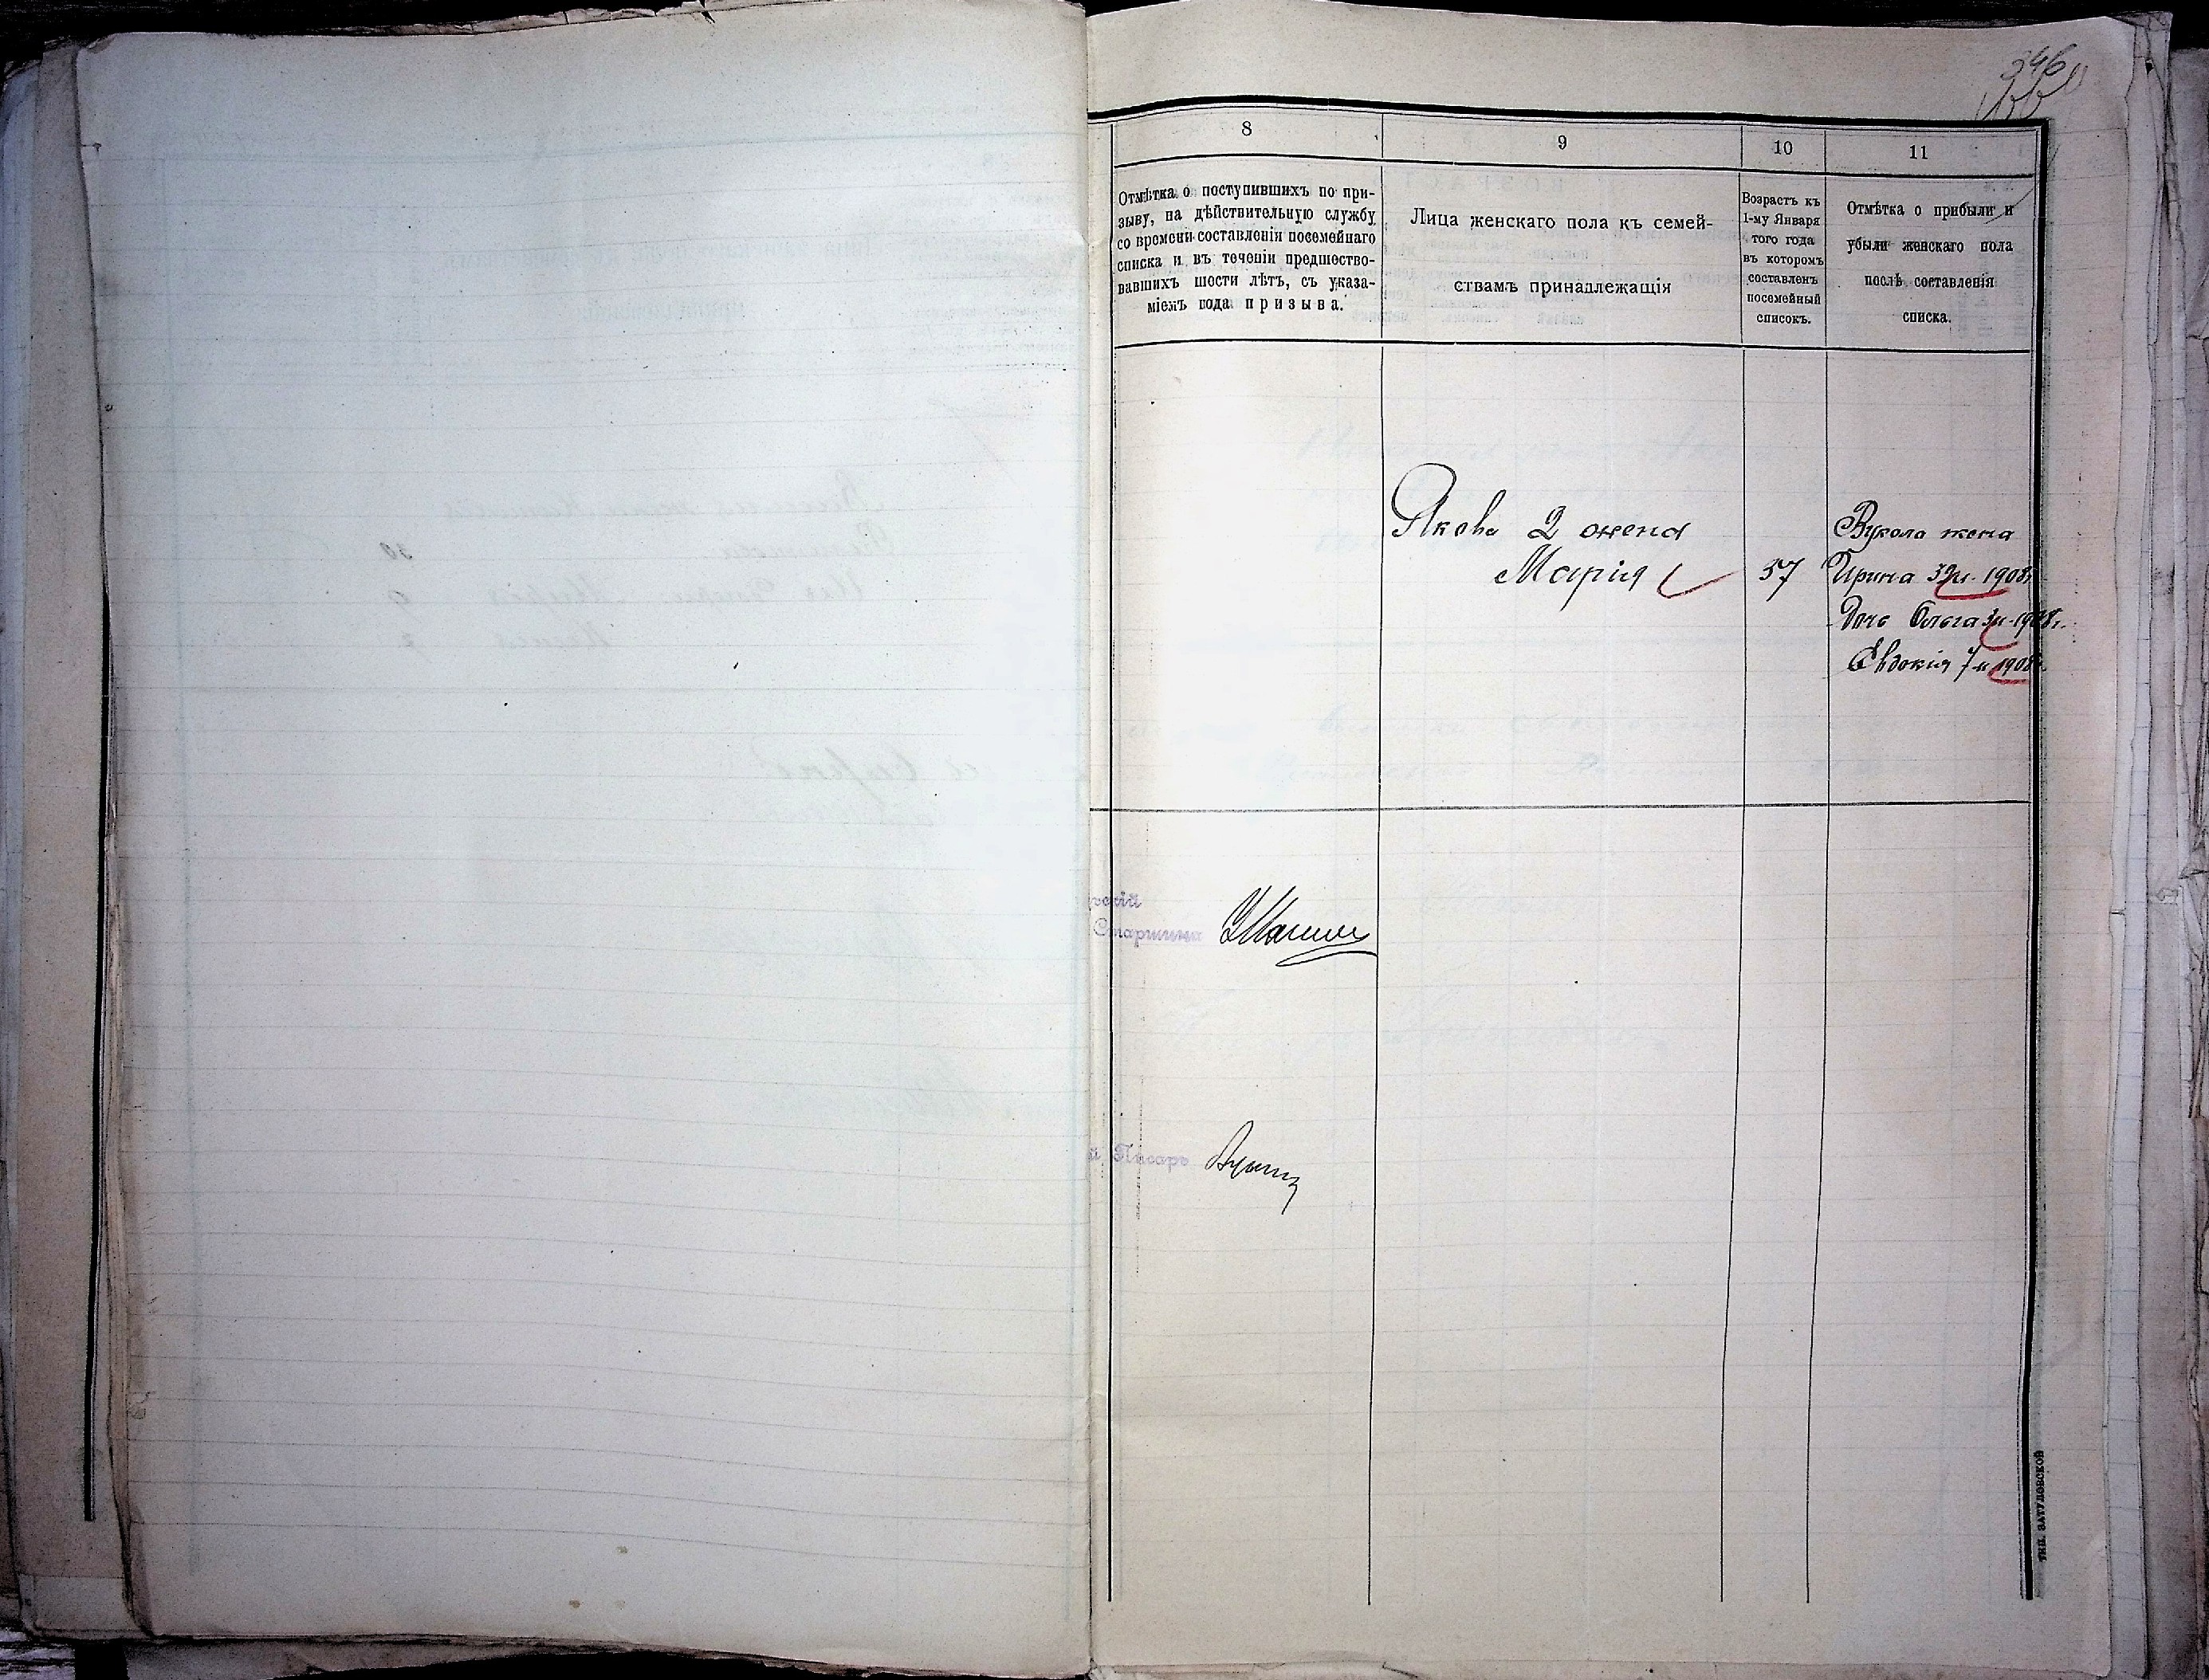 346
8
9
10
11
Отмѣтка о поступившихъ по при-
зыву, на дѣйствительную службу
со времени составленія посемейнаго
списка и въ теченіи предшество-
вавшихъ шести лѣтъ, съ указа-
ніемъ года призыва.
Лица женскаго пола къ семей-
ствамъ принадлежащія
Возрастъ къ
1-му Января
того года
въ которомъ
составленъ
посемейный
списокъ.
Отмѣтка о прибыли и
убыли женскаго пола
послѣ составленія
списка.
Якова 2 жена
Марія
57
Вукола жена
Ирина 32 л. 1908 г.
Дочь Ольга 3 л. 1908 г.
Евдокія 7 л 1908 г.
Старшина
й Писарь
ТИП. ЗАТУЛОВСКОЙ